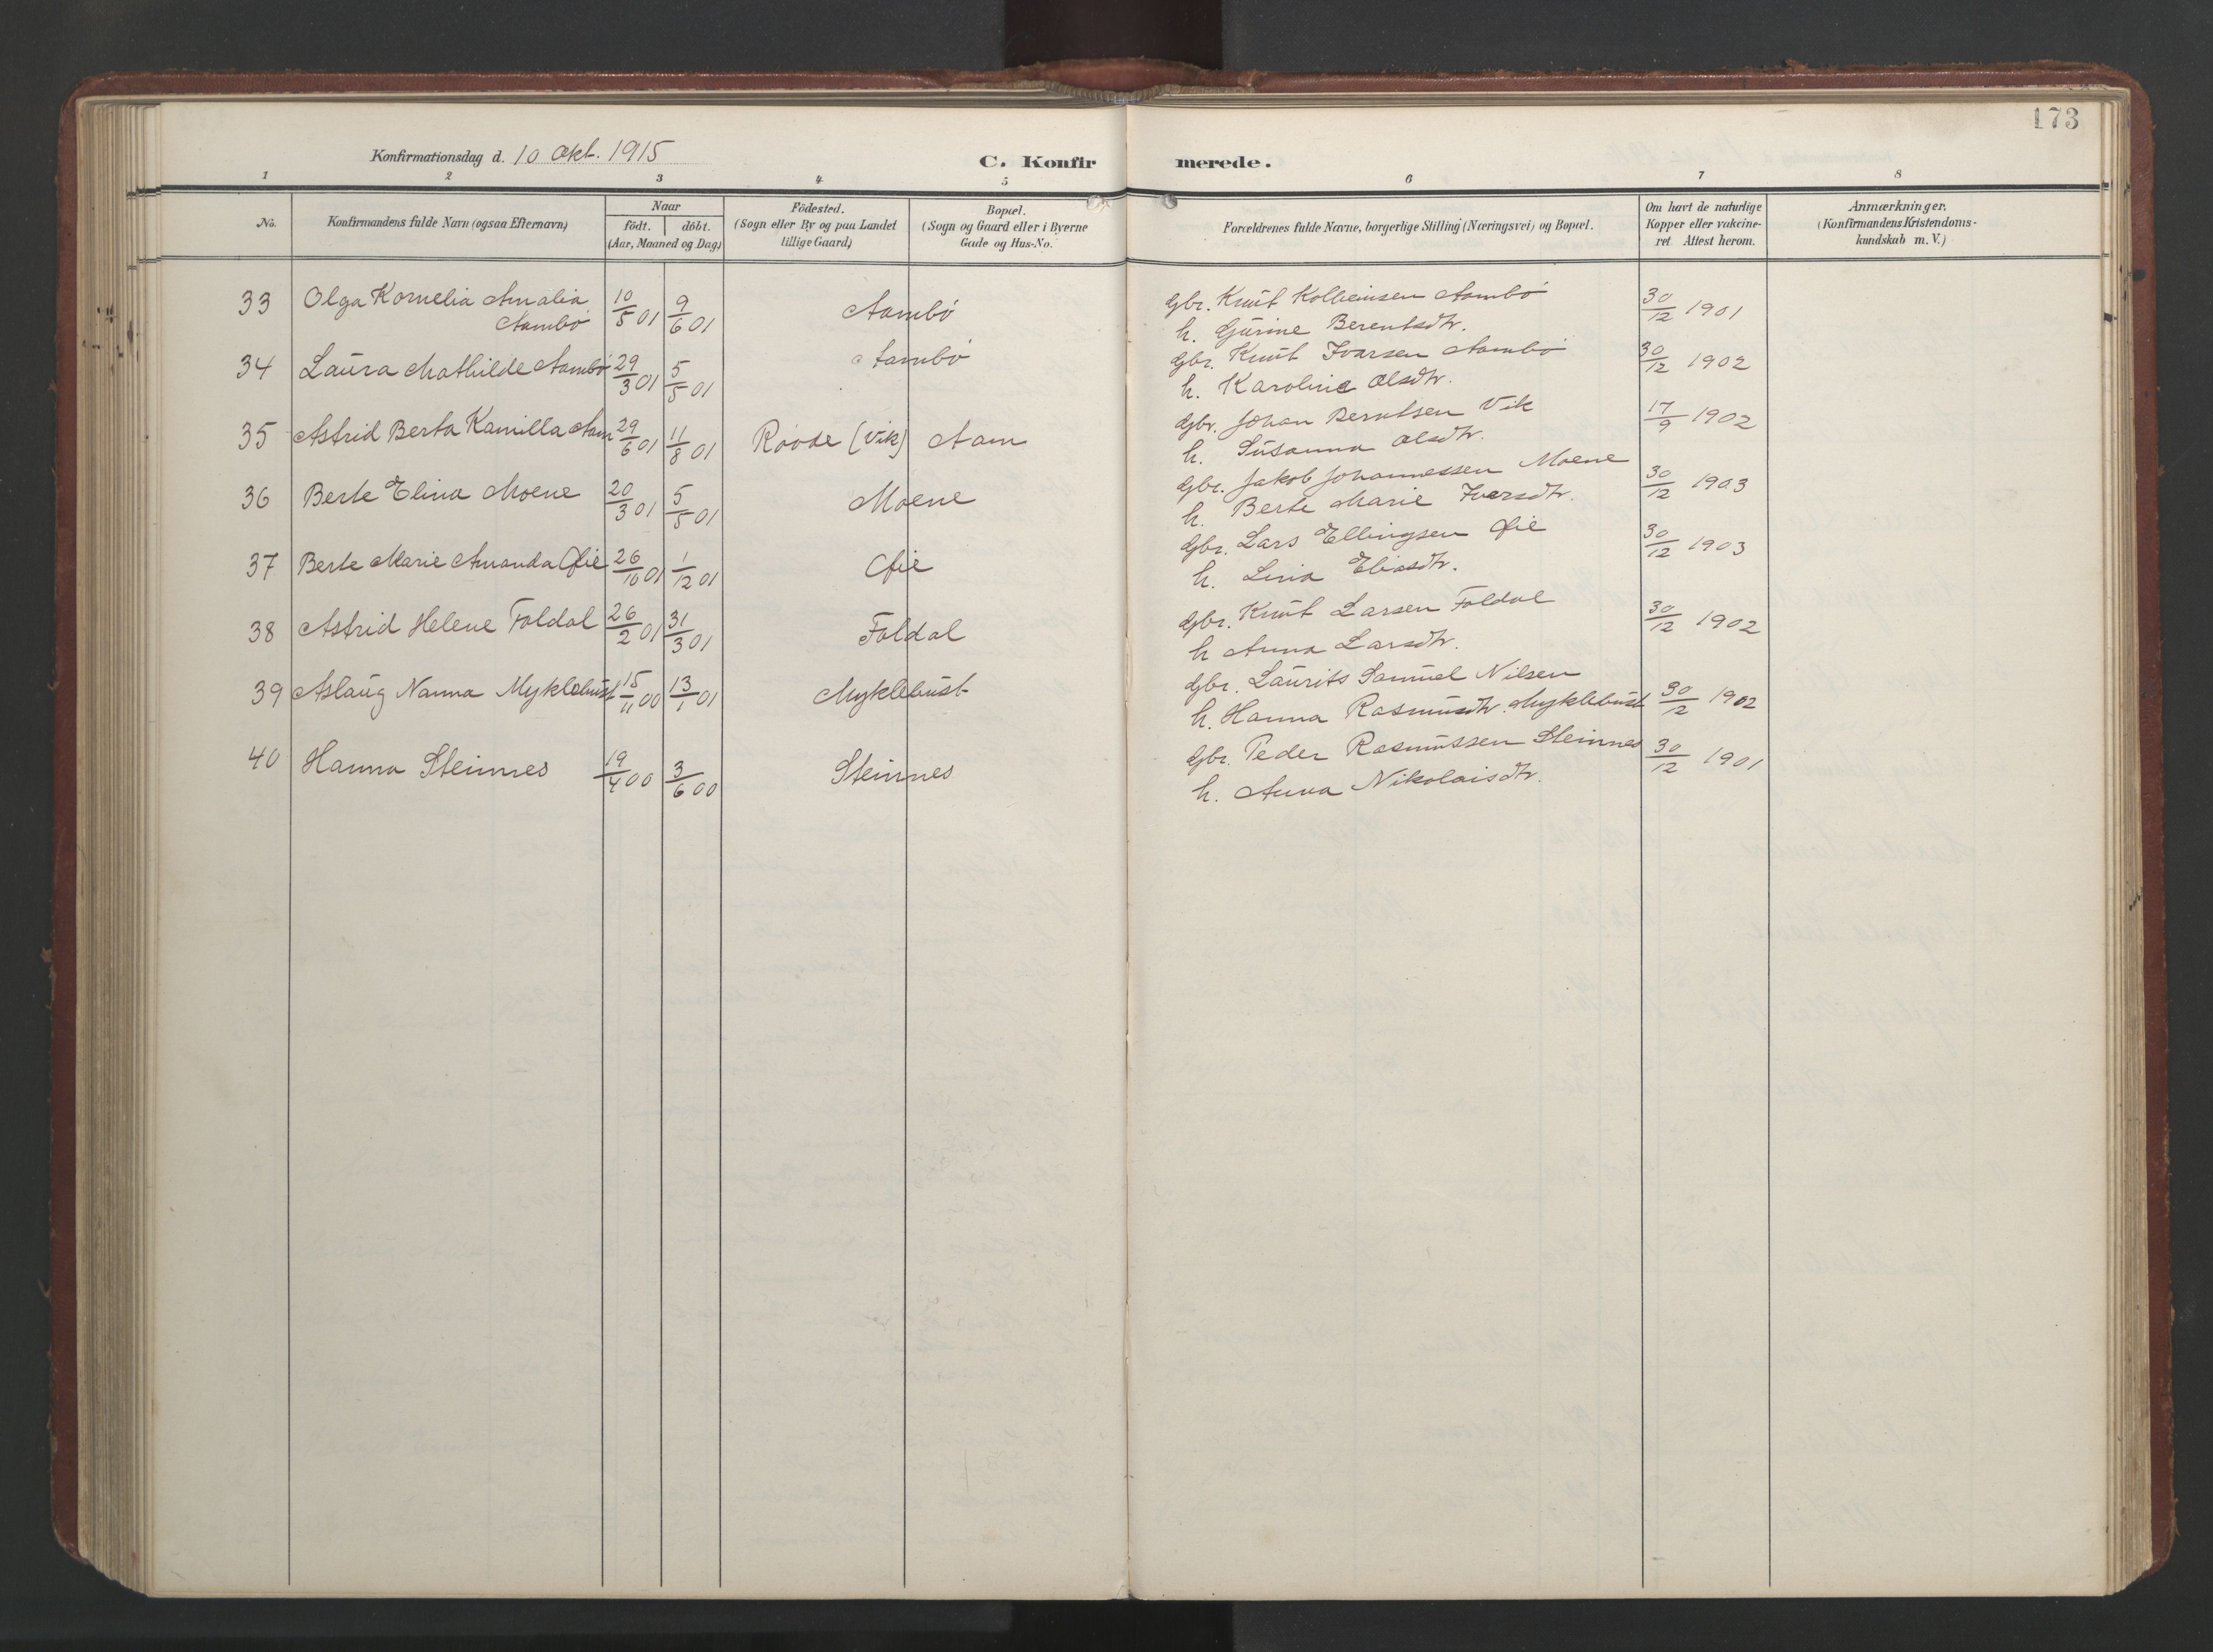 173
Konfirmationsdag d. 10 Okt. 1915
C. Konfirmerede.
1 2 3 4 5 6 7 8
No.
Konfirmandens fulde Navn (ogsaa Efternavn)
Naar
födt. döbt.
(Aar, Maaned og Dag)
Födested.
(Sogn eller By og paa Landet
tillige Gaard)
Bopæl.
(Sogn og Gaard eller i Byerne
Gade og Hus-No.
Forældrenes fulde Navne, borgerlige Stilling (Næringsvei) og Bopæl.
Om havt de naturlige
Kopper eller vakcine-
ret Attest herom.
Anmærkninger.
(Konfirmandens Kristendoms-
kundskab m. V.)
33 Olga Kornelia Amalia 10/5 01 9/6 01 Aambö Gbr. Knut Kolbeinsen Aambö 30/12 1901
Aambö h. Gurine Berentsdtr.
34 Laura Mathilde Aambö 29/3 01 5/5 01 Aambö Gbr. Knut Ivarsen Aambö 30/12 1902
h. Karoline Olsdtr.
35 Astrid Berta Kamilla Aam 29/6 01 11/8 01 (Vik) Aam Gbr. Johan Berntsen Vik 17/9 1902
h. Susanna Olsdtr.
36 Berte Elina Moene 20/3 01 5/5 01 Moene Gbr. Jakob Johannessen Moene 30/12 1903
h. Berte Marie Ivarsdtr.
37 Berte Marie Amanda Öie 26/10 01 1/12 01 Öie Gbr. Lars Ellingsen Öie 30/12 1903
h. Lina Eliasdtr.
38 Astrid Helene Foldal 26/2 01 31/3 01 Foldal Gbr. Knut Larsen Foldal 30/12 1902
h Anna Larsdtr.
39 Aslaug Nanna Myklebust 15/11 00 13/1 01 Myklebust Gbr. Laurits Samuel Nilsen
h. Hanna Rasmusdtr. Myklebust 30/12 1902
40 Hanna Steinnes 19/4 00 3/6 00 Steinnes Gbr. Peder Rasmussen Steinnes 30/12 1901
h. Anna Nikolaisdtr.